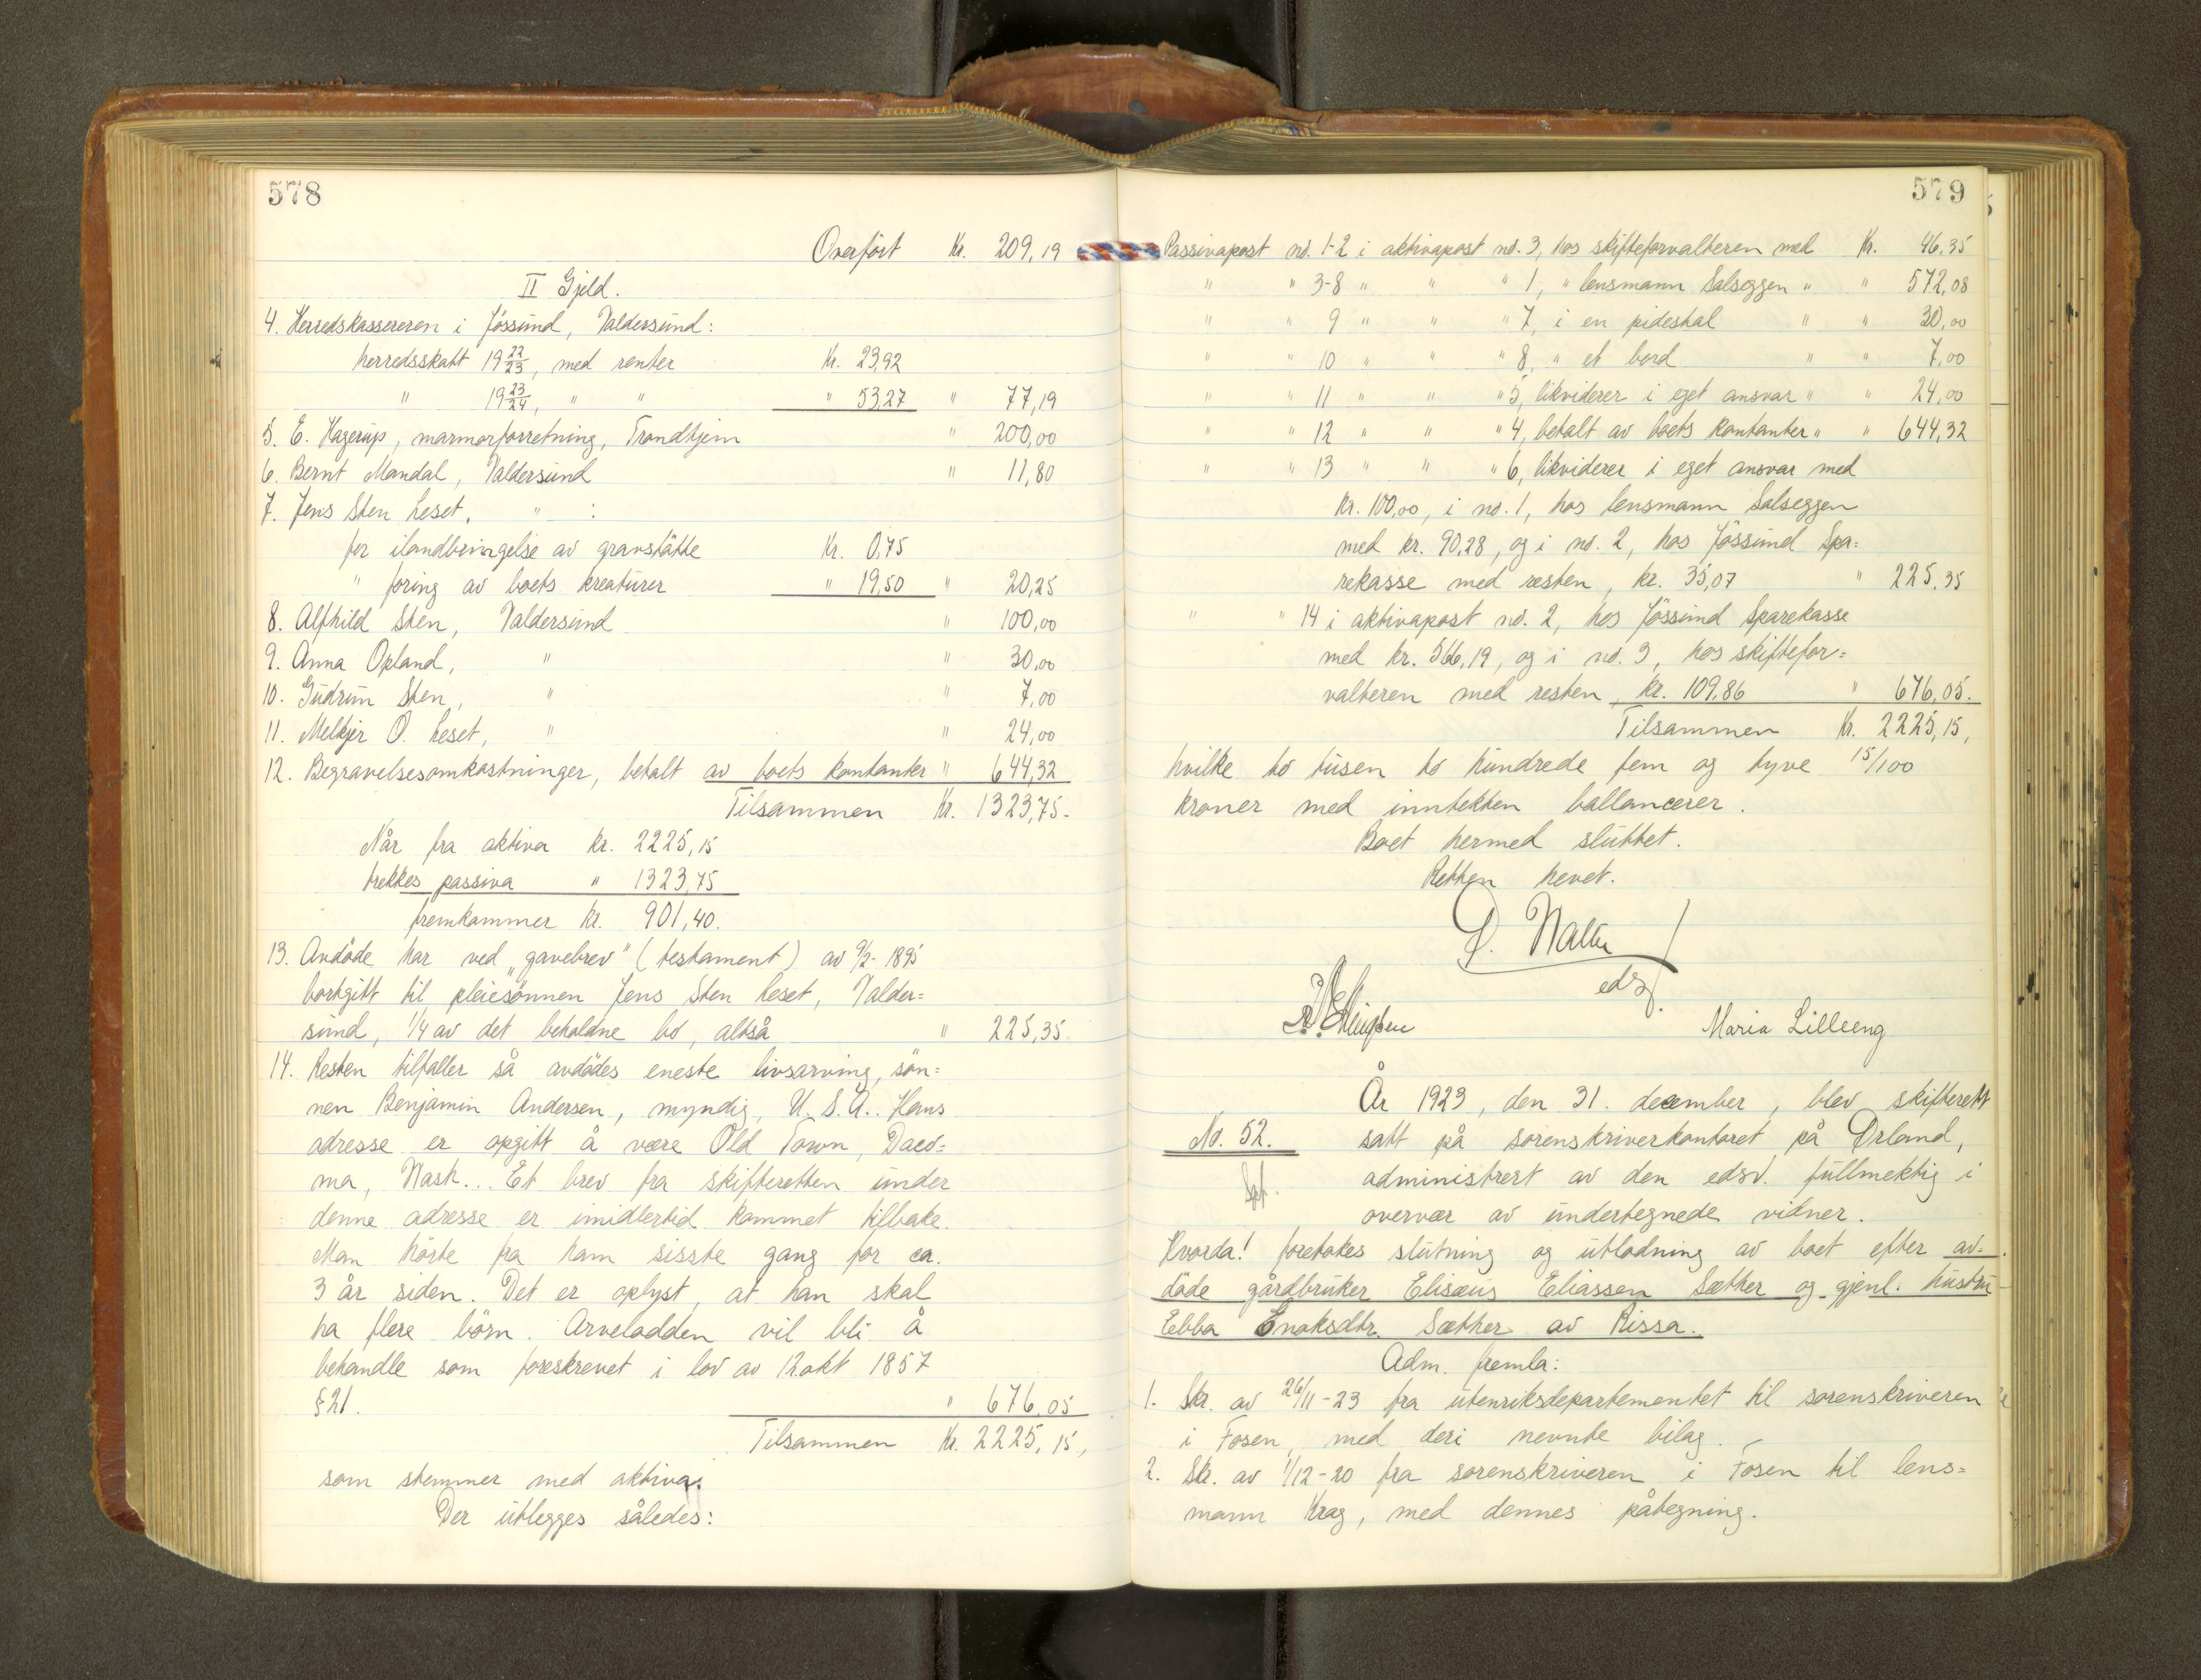 578
Overført Kr. 209,19
II Gjeld.
4. Herredskassereren i Jössund, Valdersund:
herredsskatt 19 22/23, med renter Kr. 23,92
" 19 23/24, " " " 53,27 " 77,19
5. E. Hagerup, marmorforretning, Trondhjem " 200,00
6. Bernt Mandal, Valdersund " 11,80
7. Jens Sten Leset, " :
for ilandbringelse av gravstötte Kr. 0,75
" foring av boets kreaturer " 19,50 " 20,25
8. Alfhild Sten, Valdersund " 100,00
9. Anna Opland, " " 30,00
10. Gudrun Sten, " " 7,00
11. Melkjer O. Leset, " " 24,00
12. Begravelsesomkostninger, betalt av boets kontanter " 644,32
Tilsammen Kr. 1323,75.
Når fra aktiva kr. 2225,15
trekkes passiva " 1323,75
fremkommer kr. 901,40.
13. Avdöde har ved „gavebrev" (testament) av 9/2-1895
bortgitt til pleiesönnen Jens Sten Leset, Valder=
sund, 1/4 av det beholdne bo, altså " 225,35.
14. Resten tilfaller så avdödes eneste livsarving, sön=
nen Benjamin Andersen, myndig, U.S.A.. Hans
adresse er opgitt å være Old Town, Daco=
ma, Wash... Et brev fra skifteretten under
denne adresse er imidlertid kommet tilbake.
Man hörte fra ham sisste gang for ca.
3 år siden. Det er oplyst, at han skal
ha flere börn. Arvelodden vil bli å
behandle som foreskrevet i lov av 12. okt 1857
§ 21. " 676,05
Tilsammen Kr. 2225,15,
som stemmer med aktiva.
Der utlegges således:
579
Passivapost no. 1-2 i aktivapost no. 3, hos skifteforvalteren med Kr. 46,35
" " 3-8 " " " 1, " lensmann Salseggen " " 572,08
" " 9 " " " 7, i en pidestal " " 30,00
" " 10 " " " 8, " et bord " " 7,00
" " 11 " " " 5, likviderer i eget ansvar " " 24,00
" " 12 " " " 4, betalt av boets kontanter " " 644,32
" " 13 " " " 6, likviderer i eget ansvar med
kr. 100,00, i no. 1, hos lensmann Salseggen
med kr. 90,28, og i no. 2, hos Jössund Spa=
rekasse med resten, kr. 35,07 " 225,35
" " 14 i aktivapost no. 2, hos Jössund Sparekasse
med kr. 566,19, og i no. 3, hos skiftefor=
valteren med resten, kr. 109,86 " 676,05.
Tilsammen Kr. 2225,15,
hvilke to tusen to hundrede fem og tyve 15/100
kroner med inntekten ballancerer.
Boet hermed sluttet.
Retten hevet.
edsv.
Maria Lilleeng
År 1923, den 31. december, blev skifterett
No. 52. satt på sorenskriverkontoret på Ørland,
administrert av den edsv. fullmektig i
overvær av undertegnede vidner.
Hvorda! foretokes slutning og utlodning av boet efter av=
döde gårdbruker Elisæus Eliassen Sæther og gjenl. hustru
Ebba Enoksdtr. Sæther av Rissa.
Adm. fremla:
1. Skr. av 26/11-23 fra utenriksdepartementet til sorenskriveren
i Fosen, med deri nevnte bilag.
2. Skr. av 1/12-20 fra sorenskriveren i Fosen til lens=
mann Krag, med dennes påtegning.